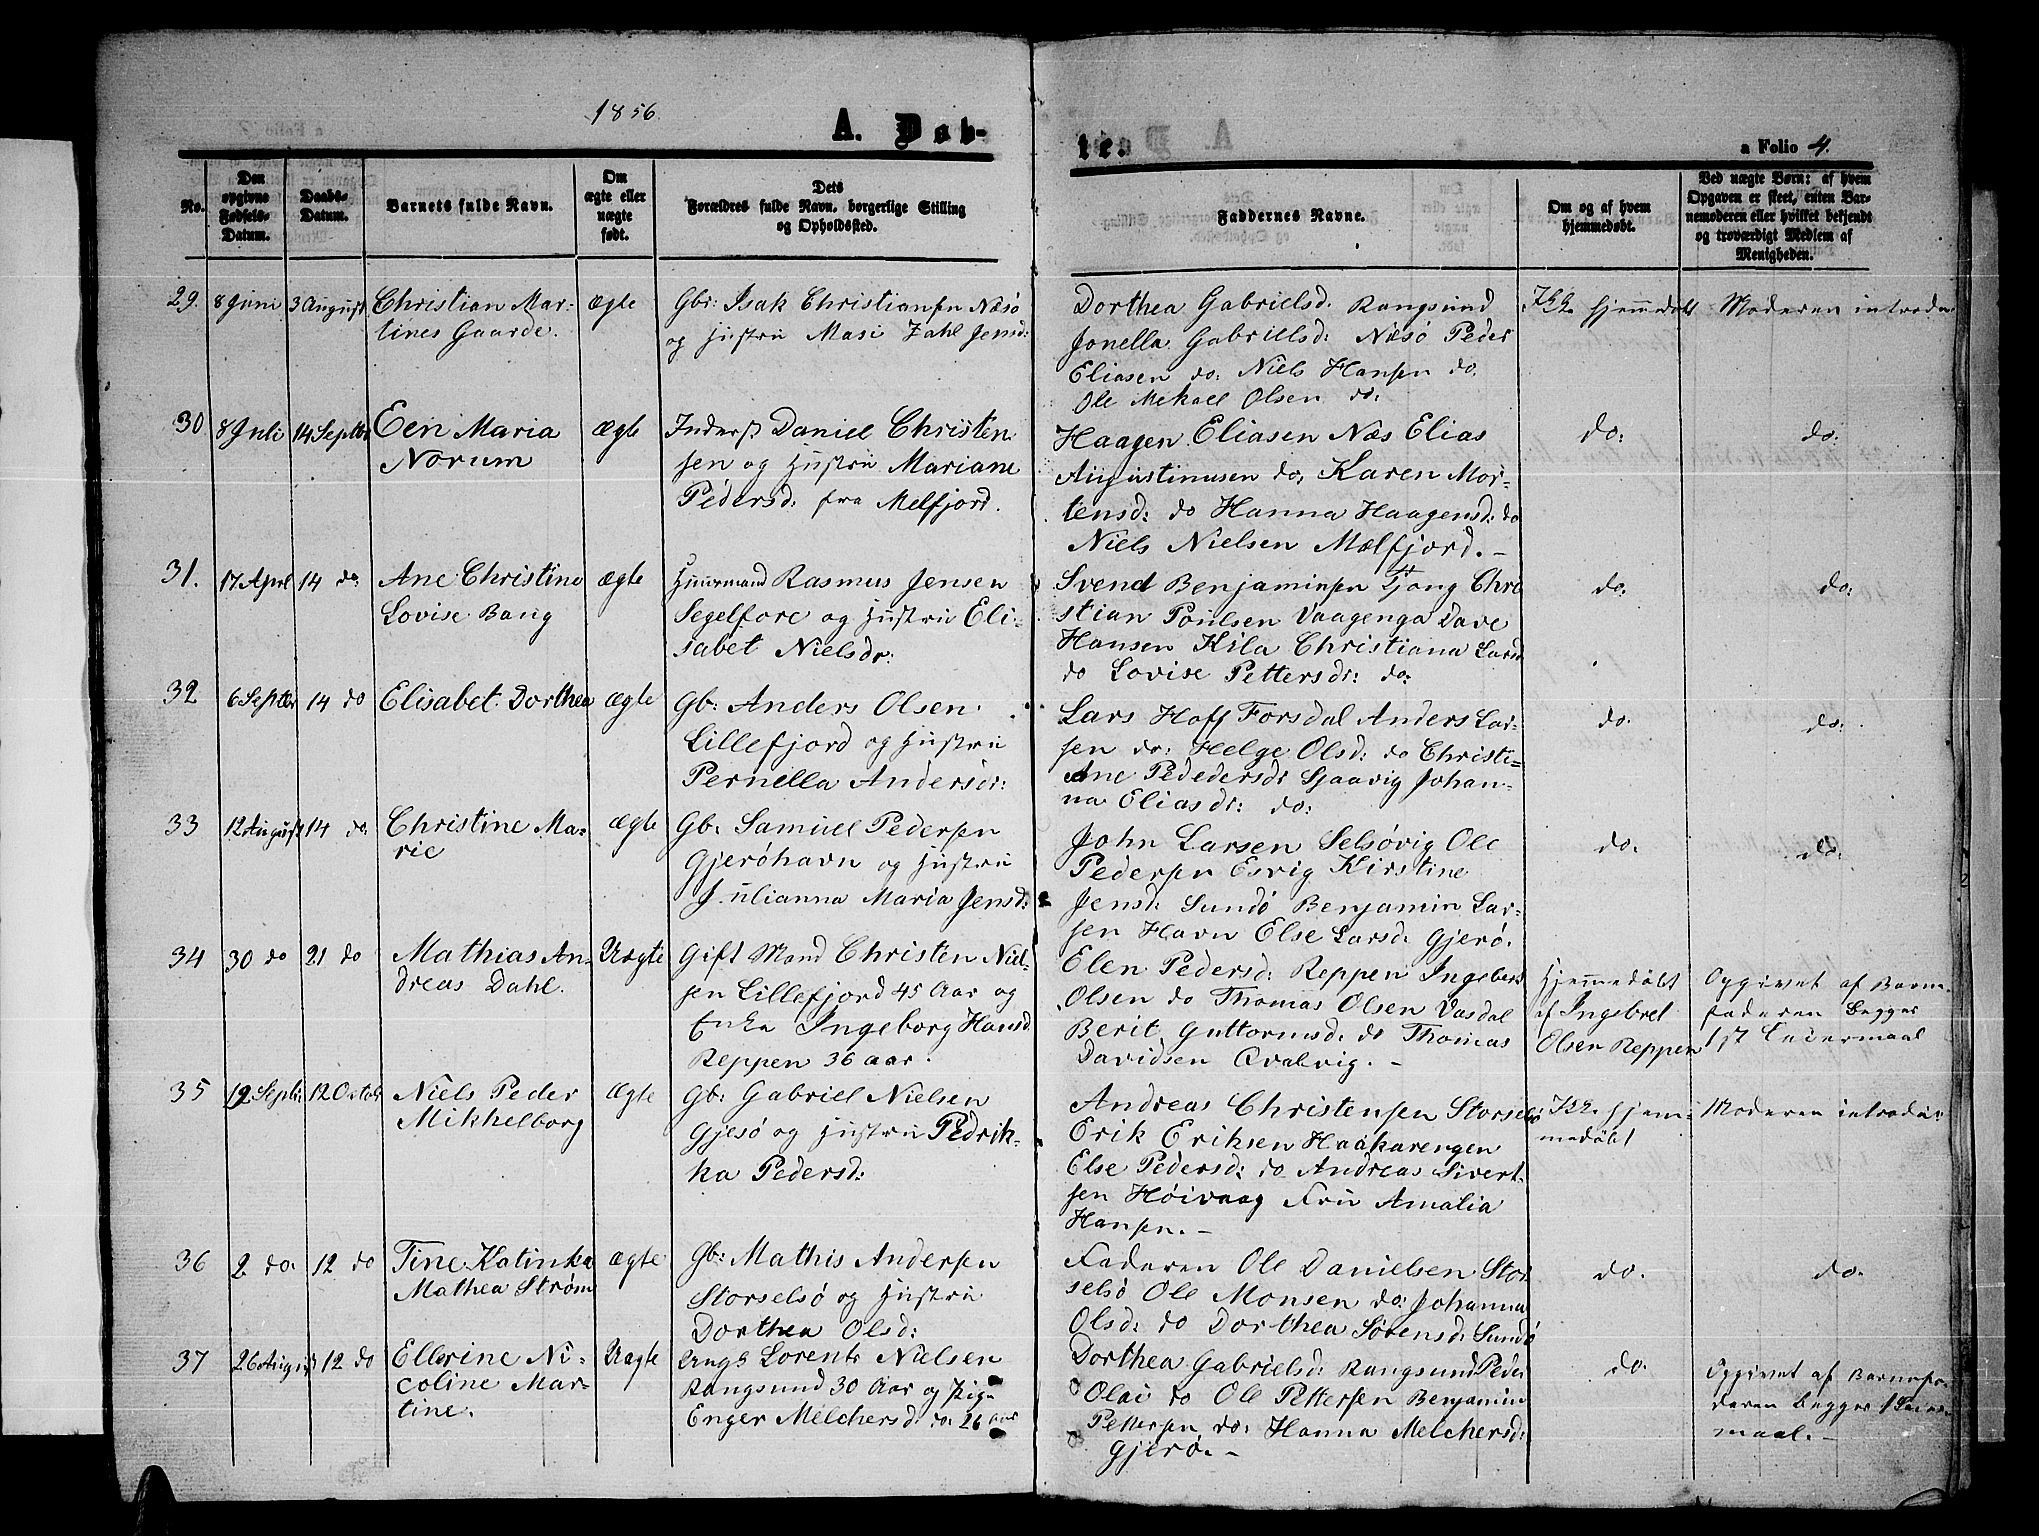 1856.
A. Døb-
te.
a Folio 4.
No.
Den
opgivne
Fødsels-
Datum.
Daabs-
Datum.
Barnets fulde Navn.
Om
ægte eller
uægte
født.
Dets
Forældres fulde Navn, borgerlige Stilling
og Opholdssted.
Faddernes Navne.
Om og af hvem
hjemmedøbt.
Ved uægte Børn: af hvem
Opgaven er skeet, enten Bar-
nemoderen eller hvilket bekjendt
og troværdigt Medlem af
Menigheden.
29. 8 Juni 3 August Christian Mar-
tines Gaarde.
Ægte
Gbr: Isak Christiansen Næsø
og Hustru Masi Zahl Jensd:
Dorthea Gabrielsd: Rangsund
Jonella Gabrielsd: Næsø Peder
Eliasen do: Niels Hansen do.
Ole Mekael Olsen do:
Ikke hjemmedøbt
Moderen introdu-
30 8 Juli 14 Septbr Een Maria
Norum
Ægte
Inderst Daniel Christen-
sen og Hustru Mariane
Pedersd: fra Melfjord.
Haagen Eliasen Næs Elias
Augustinusen do, Karen Mor-
tensd: do Hanna Haagensd: do
Niels Nielsen Mælfjord. –
do:
do:
31. 17 Aprl 14 do. Ane Christine
Lovise Bang
Ægte
Huusmand Rasmus Jensen
Segelfore og Hustru Eli-
sabet Nielsdr:
Svend Benjaminsen Tjong Chri
stian Poulsen Vaagenga Dave
Hansen Kila Christiana Larsd
do Lovise Pettersdr: do:
do:
do:
32 6 Septbr 14 do Elisabet Dorthea
Ægte
Gb: Anders Olsen
Lillefjord og Hustru
Pernella Andersdr:
Lars Hoff Forsdal Anders Lar-
sen do: Helge Olsd: do Christi-
Ane Pededersdr Sjaavig Johan-
na Eliasdr: do:
do.
do:
33 12 August 14 do. Christine Ma-
rie
Ægte
Gb: Samuel Pedersen
Gjerøhavn og Hustru
Julianna Maria Jensd:
John Larsen Selsøvig Ole
Pedersen Esvig Kirstine
Jensd: Sundø Benjamin Lar-
sen Havn Else Larsd: Gjerø.
do.
do.
34 30 do 21 do Mathias An-
dreas Dahl.
Uægte
Gift Mand Christen Niel-
sen Lillefjord 45 Aar og
Enke Ingeborg Hansd
Reppen 36 aar.
Elen Pedersd: Reppen Ingebret
Olsen do Thomas Olsen Vasdal
Berit Guttormsd: do Thomas
Davidsen Qvalvig. –
Hjemmedøbt
af Ingebret
Olsen Reppen
Opgivet af Barne-
faderen Begges
1st Leiermaal
35 12 Septr: 12 Octobr Niels Peder
Mikkelborg
Ægte
Gb: Gabriel Nielsen
Gjesø og Hustru Pedrik-
ka Pedersd:
Andreas Christensen Storselsø
Erik Eriksen Haakarengen
Else Pedersd: do Andreas Sivert-
sen Høivaag Fru Amalia
Hansen. –
Ikke Hjem-
medøbt
Moderen introdu:
36 2 do. 12 do Tine Katinka
Mathea Strøm
Ægte
Gb: Mathis Andersen
Storselsø og Hustru
Dorthea Olsd:
Faderen Ole Danielsen Stor
selsø Ole Monsen do: Johanna
Olsd: do Dorthea Sørensd: Sundø
do.
do.
37 26 August 12 do Ellerine Ni-
coline Mar-
tine.
Uægte
Ungk Lorents Nielsen
Rangsund 30 Aar og Pige
Enger Melchersd. do. 26 aar
Dorthea Gabrielsd: Rangsund Peder
Olai do Ole Pettersen Benjamin
Pettersen do: Hanna Melchersd:
Gjerø. –
do.
Opgivet af Barnefa-
deren Begges 1 Leier-
maal. –